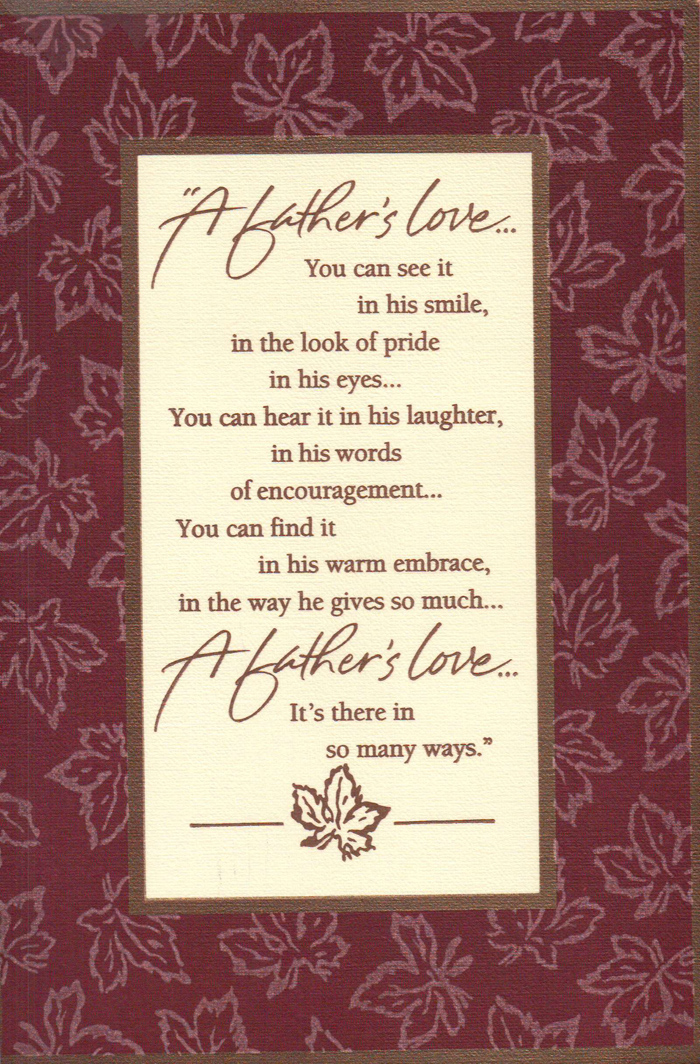 "A father's love...
You can see it
in his smile,
in the look of pride
in his eyes...
You can hear it in his laughter,
in his words
of encouragement...
You can find it
in his warm embrace,
in the way he gives so much...
A father's love...
It's there in
so many ways."